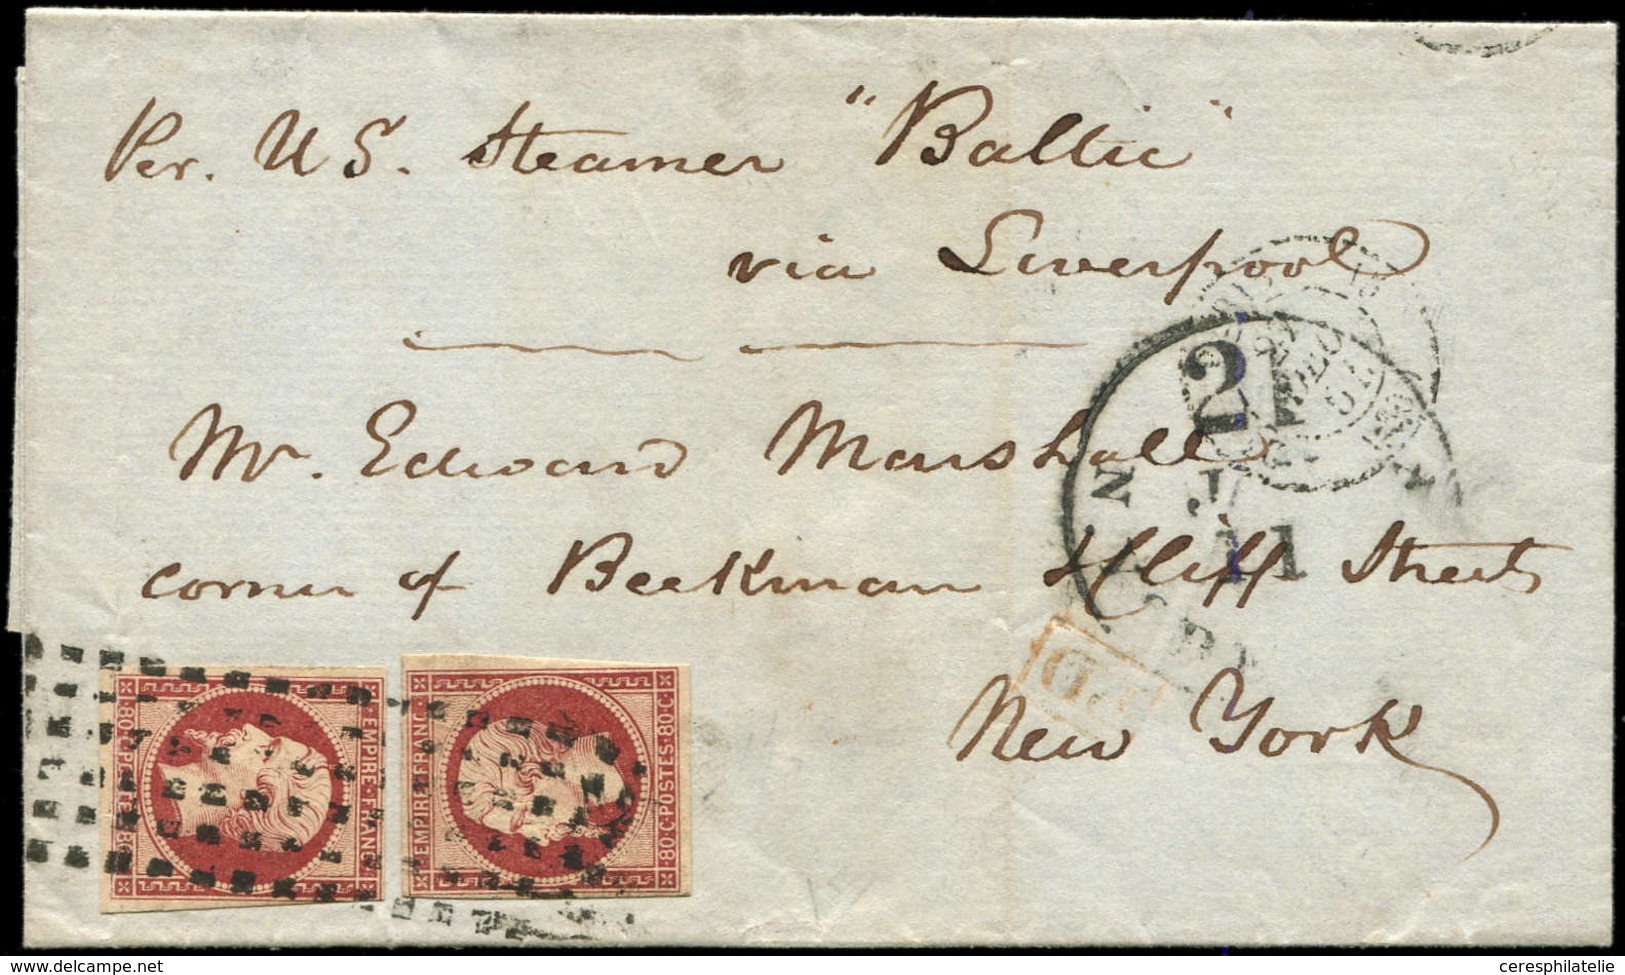 Per. U S. Steamer "Baltic"
via Liverpool
Mr. Edward Marshall
corner of Beekman & Cliff Streets
New York
21
J
11
P.D
80·C·POSTES·80·C·
EMPIRE·FRANC·
EMPIRE FRANC
80·C·POSTES·80·C·
delcampe.net
ceresphilatelie